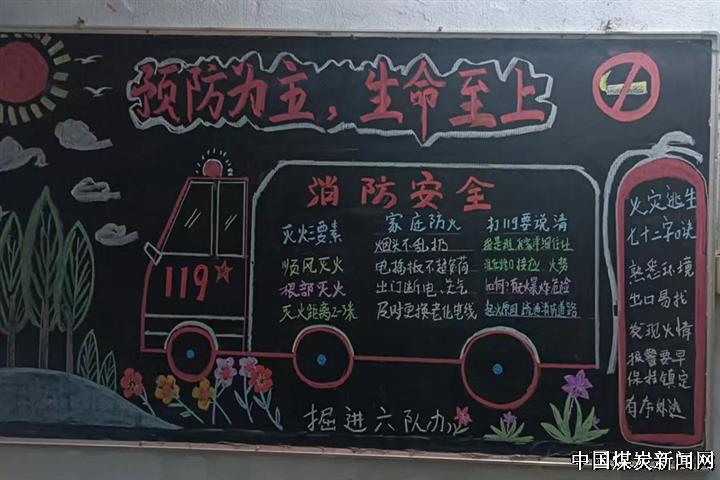 预防为主,生命至上
消防安全
灭火三要素
顺风灭火
根部灭火
灭火距离2-3米
家庭防火
烟头不乱扔
电插板不超负荷
出门断电、关气
及时更换老化电线
打119要说清
火势
如何?有无爆炸危险
119
火灾逃生
七十二字口诀
熟悉环境
出口易找
发现火情
报警要早
保持镇定
有序外逃
掘进六队办
中国煤炭新闻网